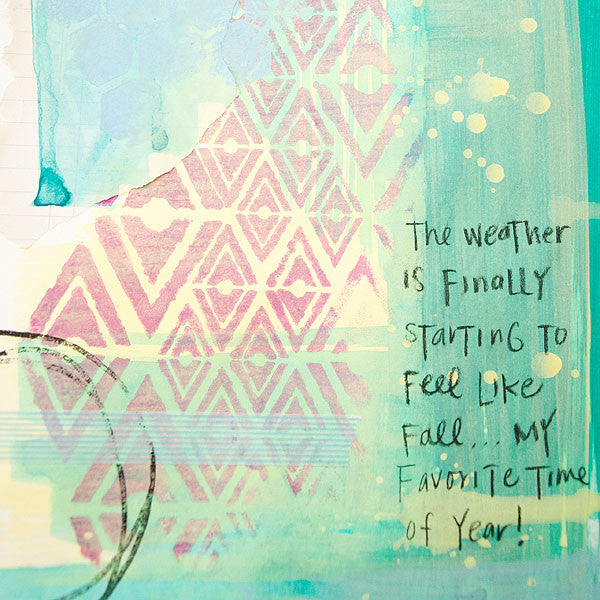 The weather
is Finally
starting to
Feel Like
Fall... My
Favorite Time
of Year!